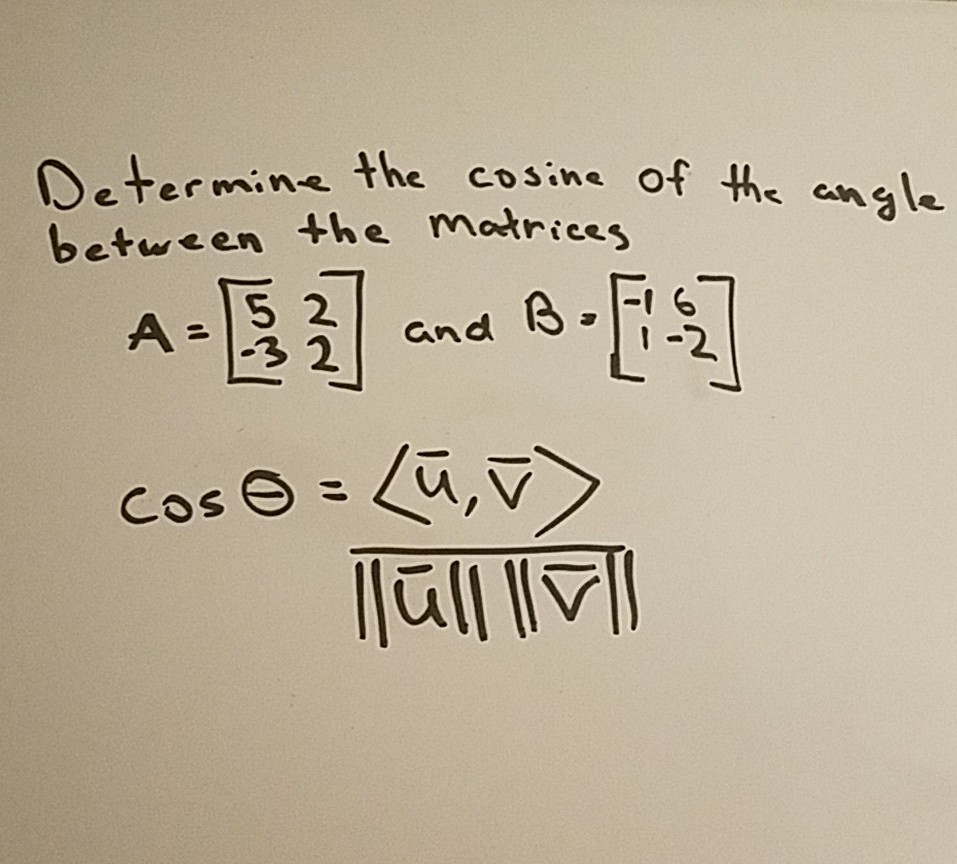 Determine the cosine of the angle
between the matrices
A = [5 2 -3 2] and B = [-1 6 1 -2]
cos Θ = <ū, v̄>
||ū|| ||v̄||